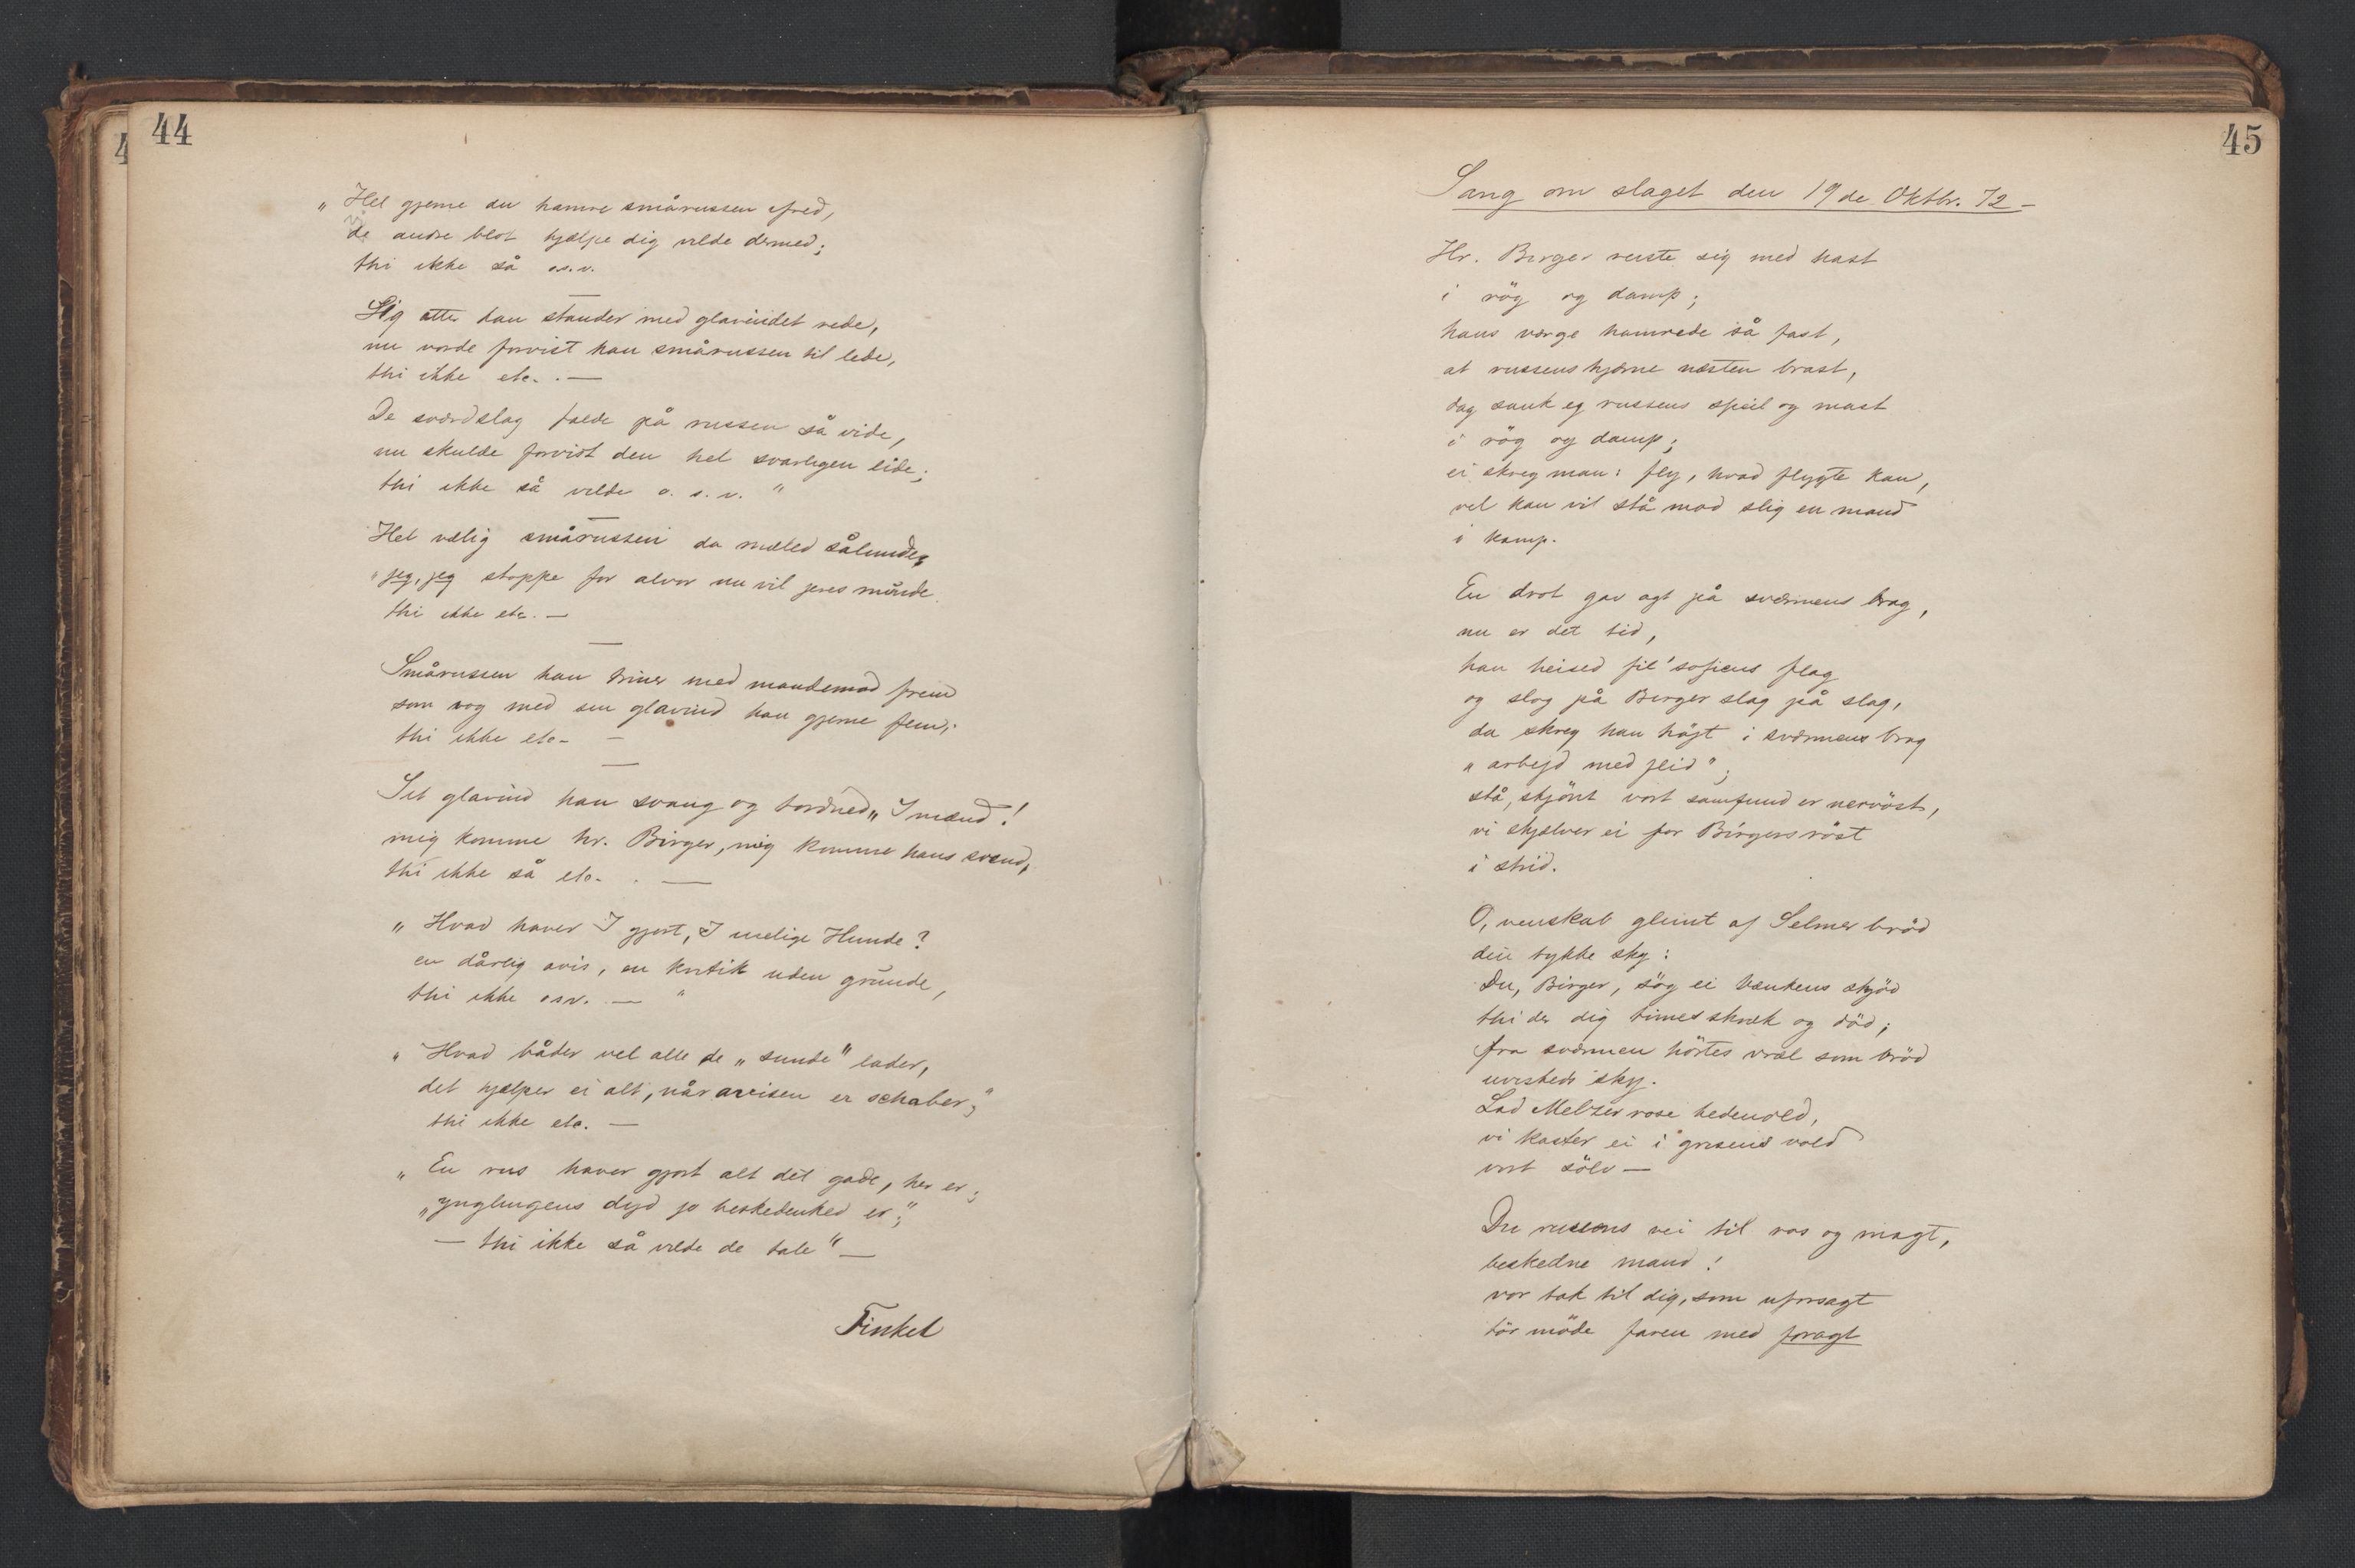 44
„Hel gjerne du hamre smårussen ifred,
vi andre blot hjælpe dig vilde dermed;
thi ikke så o.s.v.
Sig atter han stander med glavindet rede,
nu vorde forvist han smårussen til lede,
thi ikke etc. . —
De sværdslag falde på russen så vide,
nu skulde forvist den hel svarligen lide;
thi ikke så vilde o. s. v. "
Hel vælig smårussen da mæled sålunde,
"jeg, jeg stoppe for alvor nu vil jeres munde.
thi ikke etc. —
Smårussen han triner med mandemod frem
som vog med sin glavind han gjerne fem;
thi ikke etc- —
Sit glavind han svang og tordned „I mænd!
mig komme hr. Birger, mig komme hans svend,
thi ikke så etc- . —
„Hvad haver I gjort, I uselige Hunde?
en dårlig avis, en kritik uden grunde,
thi ikke osv. — "
„Hvad båder vel alle de „sunde" lader,
det hjælper ei alt, når avisen er schaber;"
thi ikke etc. —
„En rus haver gjort alt det gode, her er;
„ynglingens dyd jo beskedenhed er;"
— thi ikke så vilde de tale" —
Finkel
45
Sang om slaget den 19de Oktbr. 72 —
Hr. Birger reiste sig med hast
i røg og damp;
hans værge hamrede så fast,
at russens hjerne næsten brast,
dog sank ej russens speil og mast
i røg og damp;
ei skreg man: fly, hvad flygte kan,
vel han vil stå mod slig en mand
i kamp.
En drot gav agt på sværmens brag,
nu er det tid,
han heised fil'sofiens flag
og slog på Birger slag på slag,
da skreg han højt i sværmens brag
"arbejd med flid";
stå, skjønt vort samfund er nervøst,
vi skjælver ei for Birgers røst
i strid.
O, venskab glimt af Selmer brød
din tykke sky:
Du, Birger, søg ei bænkens skjød
thi der dig times skræk og død;
fra sværmen hørtes vræl som brød
uvisheds sky.
Lad Melzer rose hedenold,
vi kaster ei i grisens vold
vort sølv —
Du russens vei til ros og magt,
beskedne mand!
vor tak til dig, som uforsagt
tør møde faren med foragt